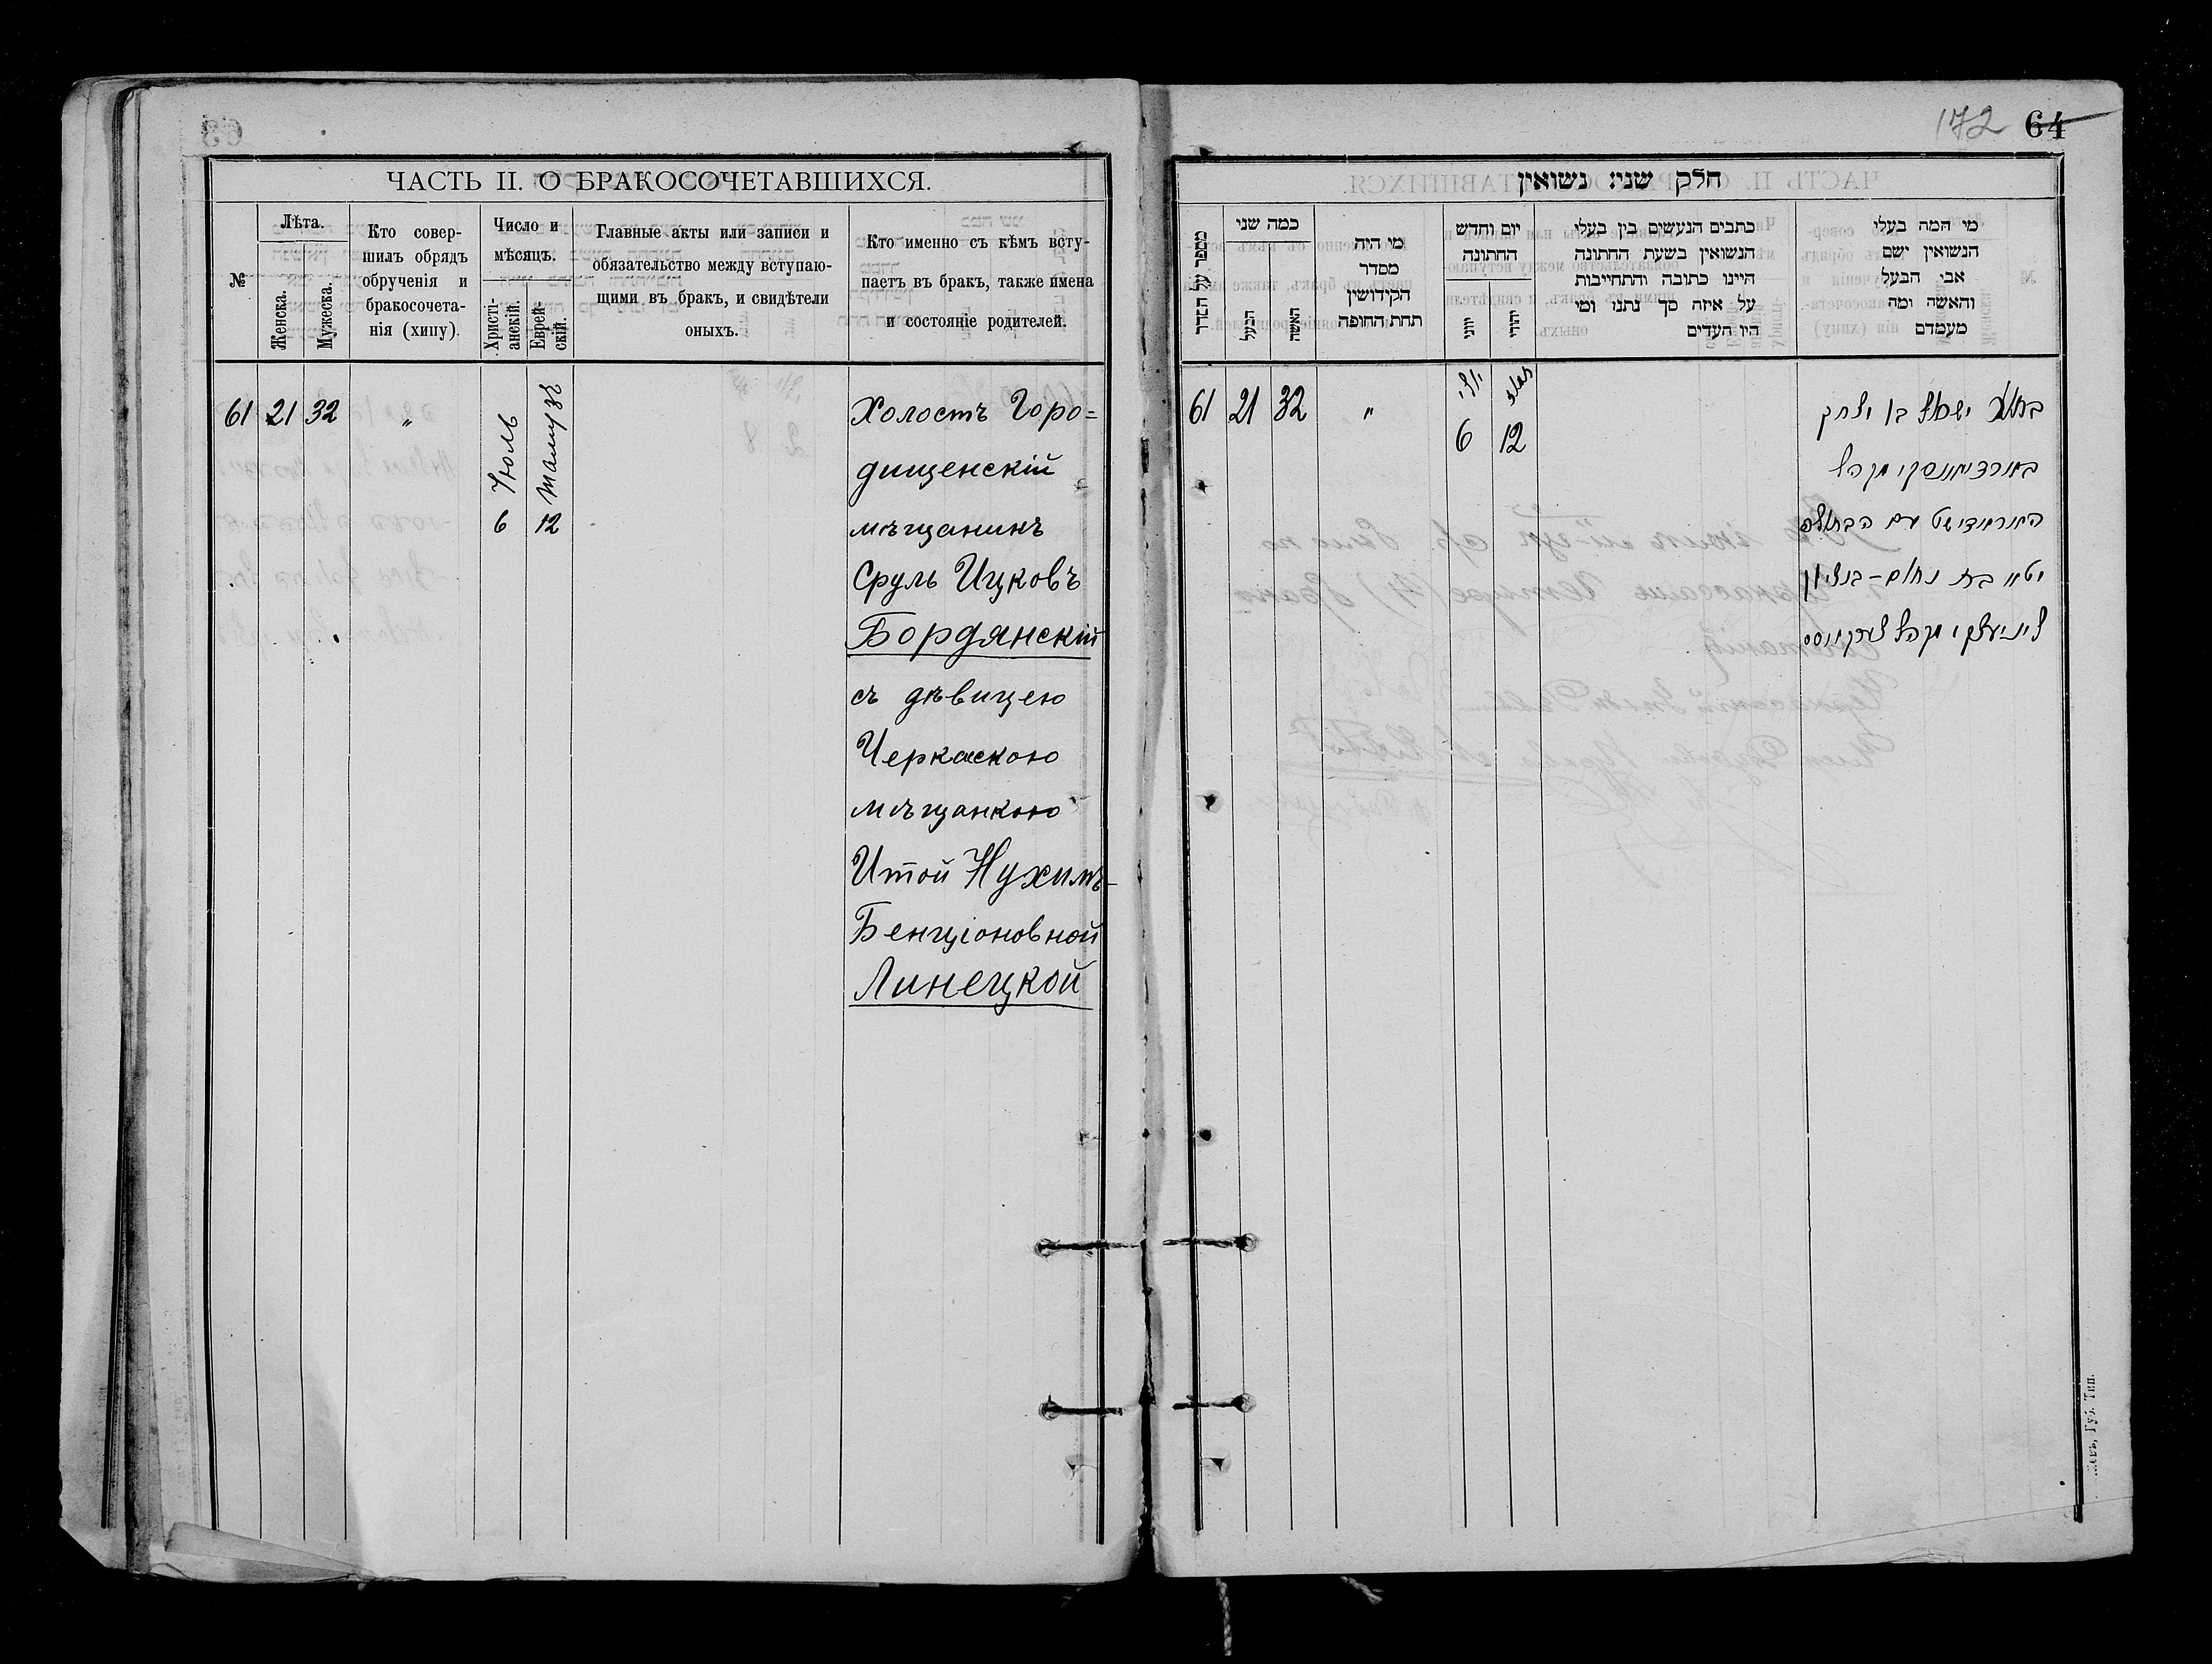 ЧАСТЬ II. О БРАКОСОЧЕТАВШИХСЯ.
№
Лѣта.
Женска.
Мужеска.
Кто совер-
шилъ обрядъ
обрученія и
бракосочета-
нія (хипу).
Число и
мѣсяцъ.
Христі-
анскій.
Еврей-
скій.
Главные акты или записи и
обязательство между вступаю-
щими въ бракъ, и свидѣтели
оныхъ.
Кто именно съ кѣмъ всту-
паетъ въ бракъ, также имена
и состояніе родителей.
61 21 32 „
Июль
6
Тамузъ
12
Холостъ Горо=
дищенскій
мѣщанинъ
Сруль Ицковъ
Бордянскій
съ дѣвицею
Черкаскою
мѣщанкою
Итой Нухимъ-
Бенціоновной
Линецкой
172 64
חלק שני: נשואין
מספר על הסדר
כמה שני
הבעל
האשה
מי היה
מסדר
הקידושין
תחת החופה
יום וחדש
החתונה
יוני
יהודי
כתבים הנעשים בין בעלי
הנשואין בשעת החתונה
היינו כתובה והתחייבות
על איזה סך נתנו ומי
היו העדים
מי המה בעלי
הנשואין ישם
אבי הבעל
והאשה ומה
מעמדם
61 21 32 „
יולי
6
תמוז
12
בחור ישראל בן יצחק
באורדיאנסקי מקהל
האראדישט עם הבתולה
יטא בת נחום-בנציון
ליניעצקי מקהל צערקאסס
Губ. Тип.